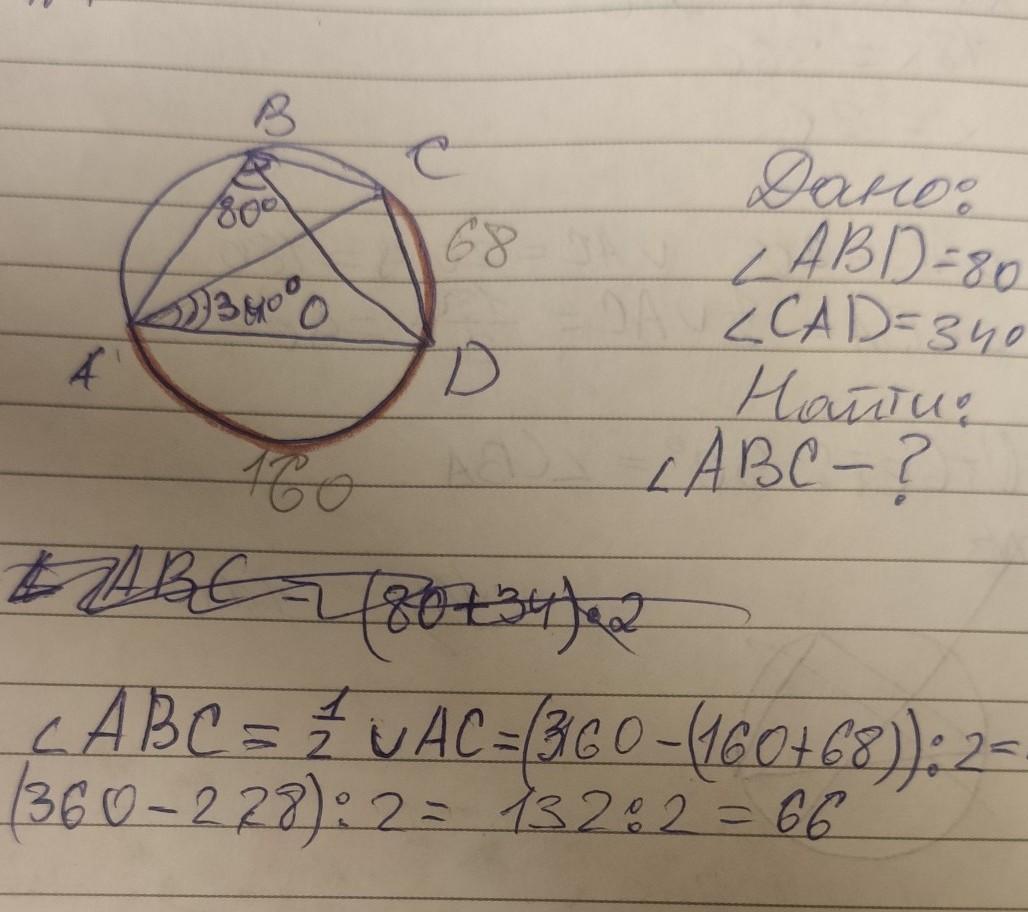 B
C
80°
68
34° O
A
D
160
Дано:
∠ABD=80
∠CAD=34°
Найти:
∠ABC-?
∠ABC = (80+34)·2
∠ABC = 1/2 ∪AC=(360-(160+68)):2=
(360-228):2= 132:2=66